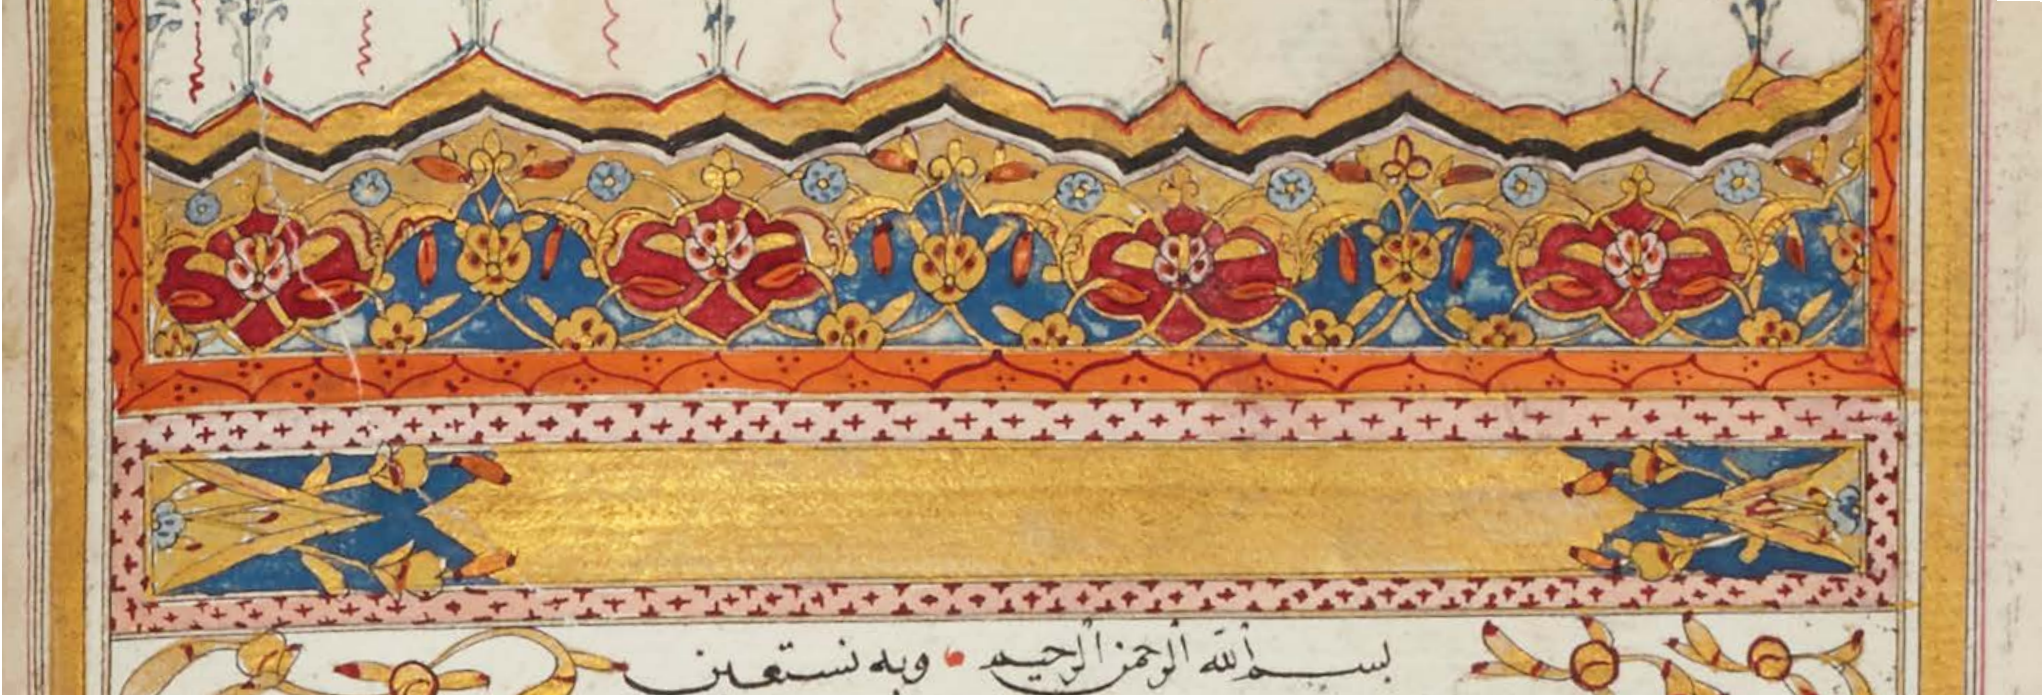 بسم الله الرحمن الرحيم • وبه نستعين